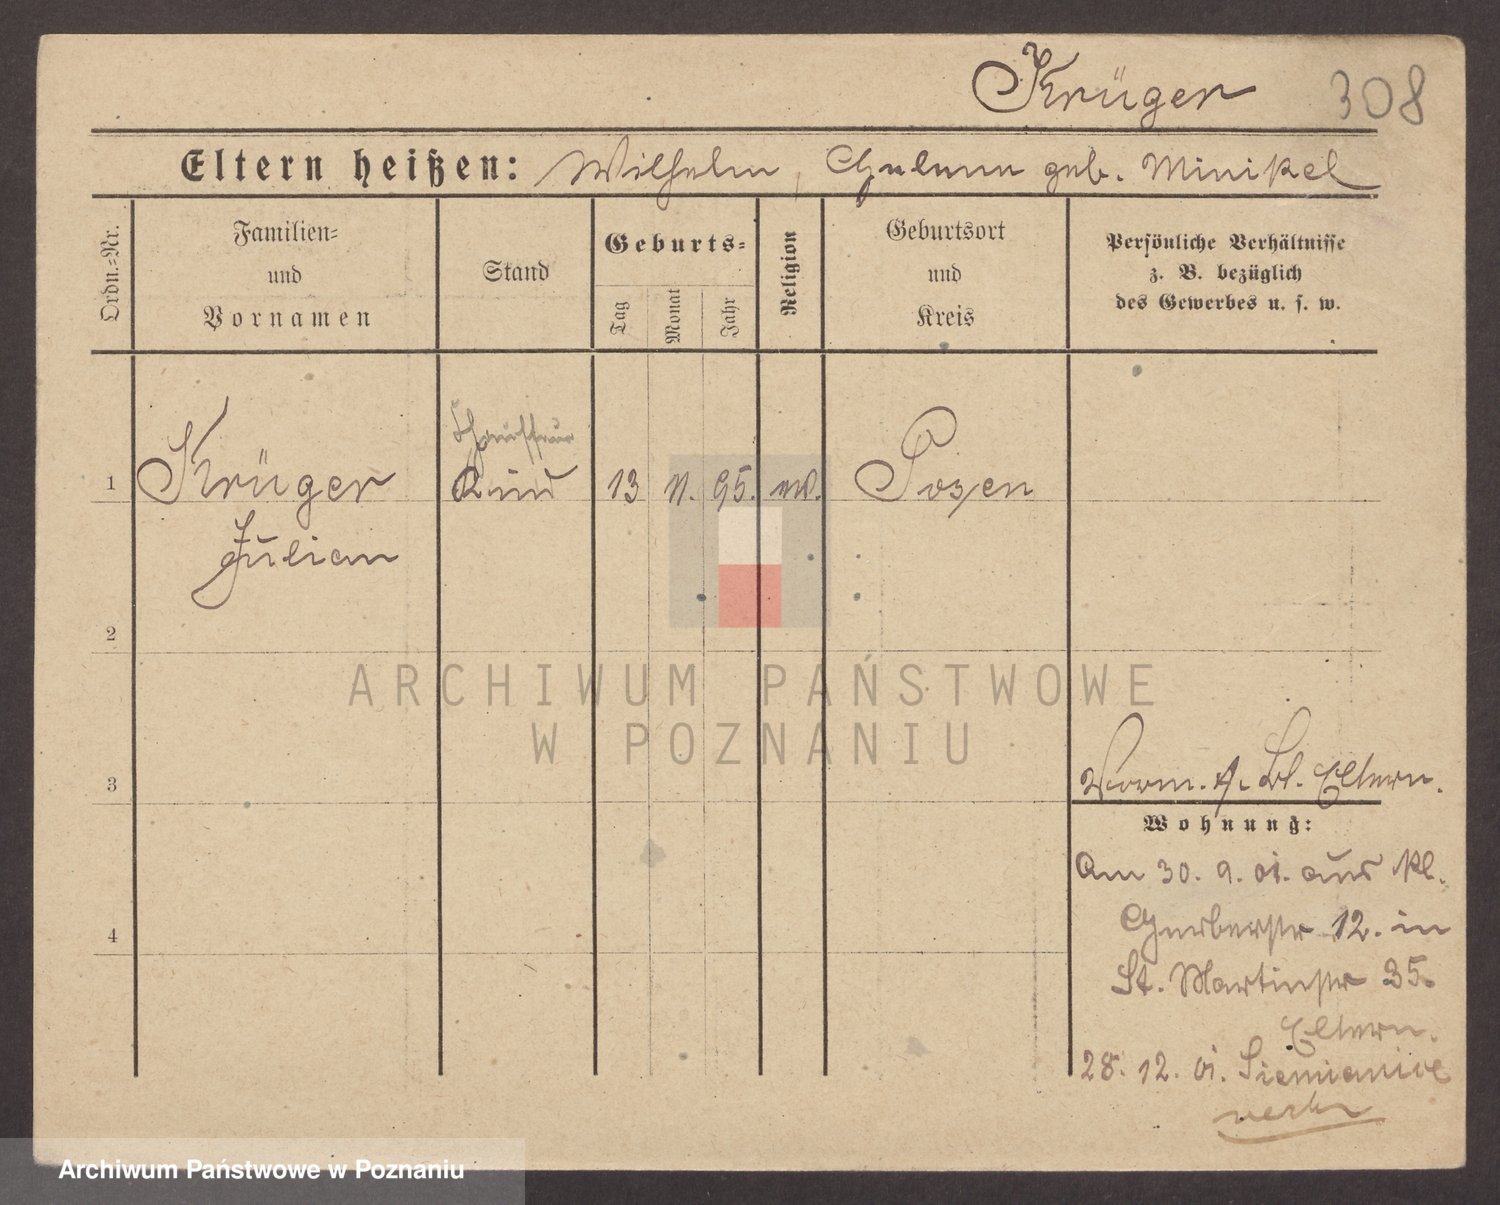 Krüger 308
Eltern heißen: Wilhelm, Helene geb. Minikel
Ordn.-Nr.
Familien-
und
Vornamen
Stand
Geburts-
Tag
Monat
Jahr
Religion
Geburtsort
und
Kreis
Persönliche Verhältnisse
z. B. bezüglich
des Gewerbes u. s. w.
Chauffeur
1 Krüger Kind 13 11. 95. ev. Posen
Julian
2
ARCHIWUM PAŃSTWOWE
W POZNANIU
3
Vorm. f. Bl. Eltern.
Wohnung:
Am 30. 9. 01. aus Kl.
4
Gerberstr 12. in
St. Martinstr 35.
Eltern.
28. 12. 01. Siemianice
verzo
Archiwum Państwowe w Poznaniu